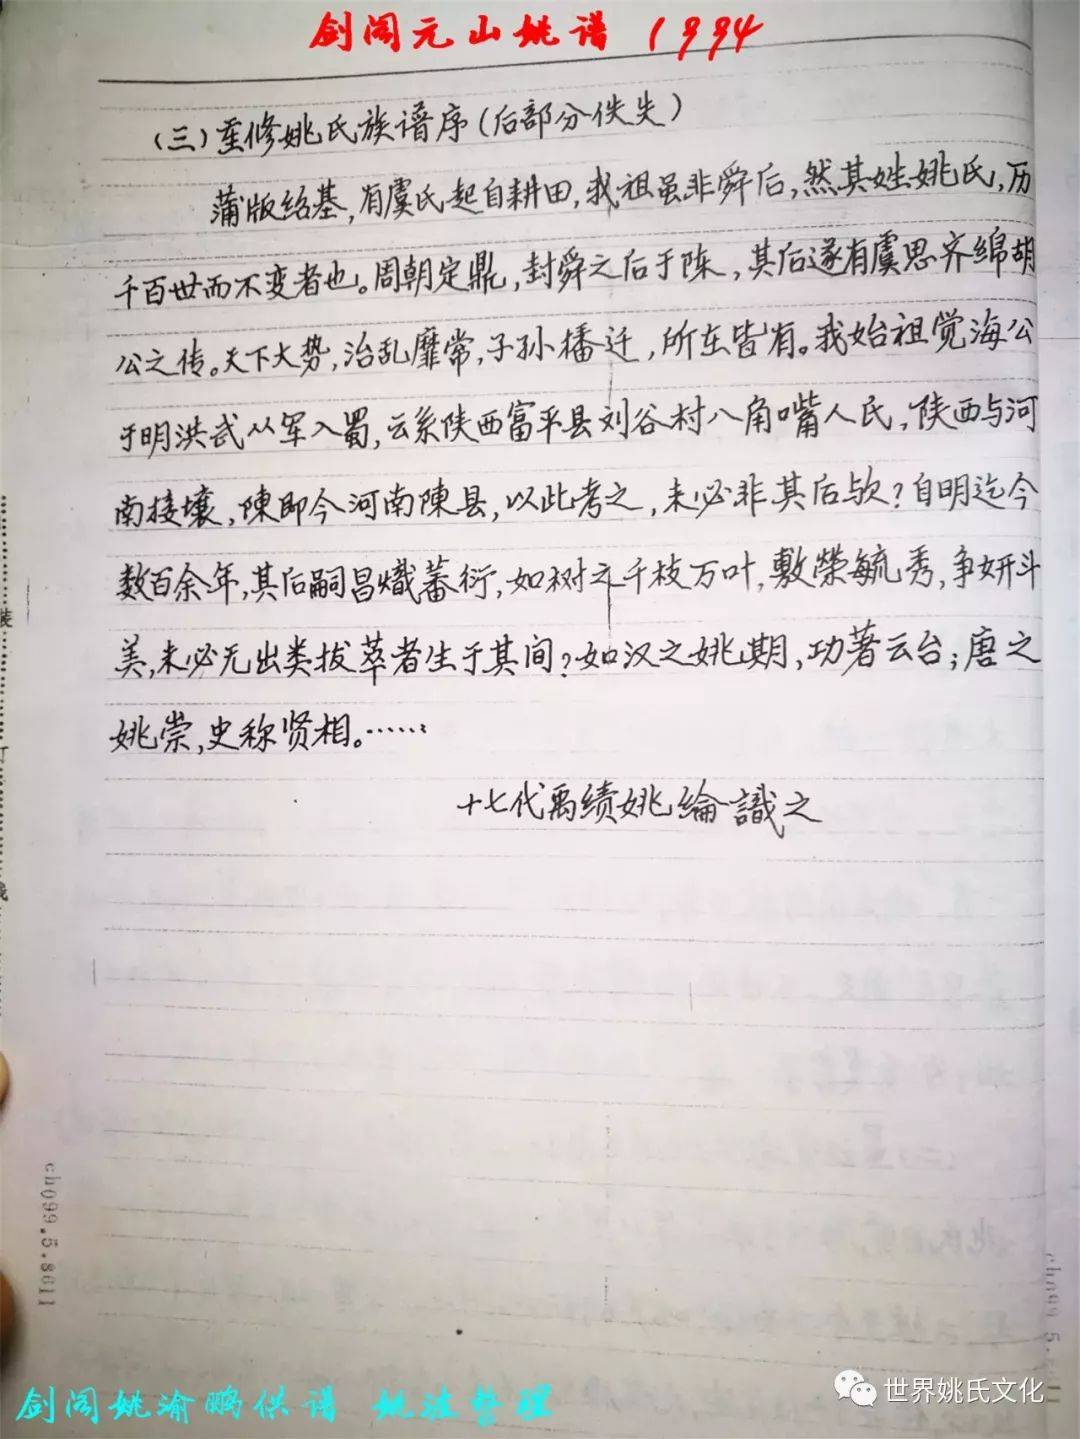 剑阁元山姚谱 1994
(三)重修姚氏族谱序(后部分佚失)
蒲版绍基,有虞氏起自耕田,我祖虽非舜后,然其姓姚氏,历
千百世而不变者也。周朝定鼎,封舜之后于陈,其后遂有虞思齐绵胡
公之传。天下大势,治乱靡常,子孙播迁,所在皆有。我始祖觉海公
于明洪武从军入蜀,云系陕西富平县刘谷村八角嘴人民,陕西与河
南接壤,陳即今河南陳县,以此考之,未必非其后欤?自明迄今
数百余年,其后嗣昌熾蕃衍,如树之千枝万叶,敷榮毓秀,争妍斗
美,未必无出类拔萃者生于其间?如汉之姚期,功著云台;唐之
姚崇,史称贤相。……
十七代禹绩姚綸識之
装
订
线
ch099.5.8611
剑阁姚渝鹏供谱 姚法整理
世界姚氏文化